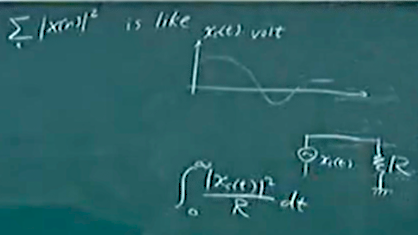 ∑ |x(n)|² is like x(t) volt
x(t)
R
∫₀^∞ |x(t)|²/R dt